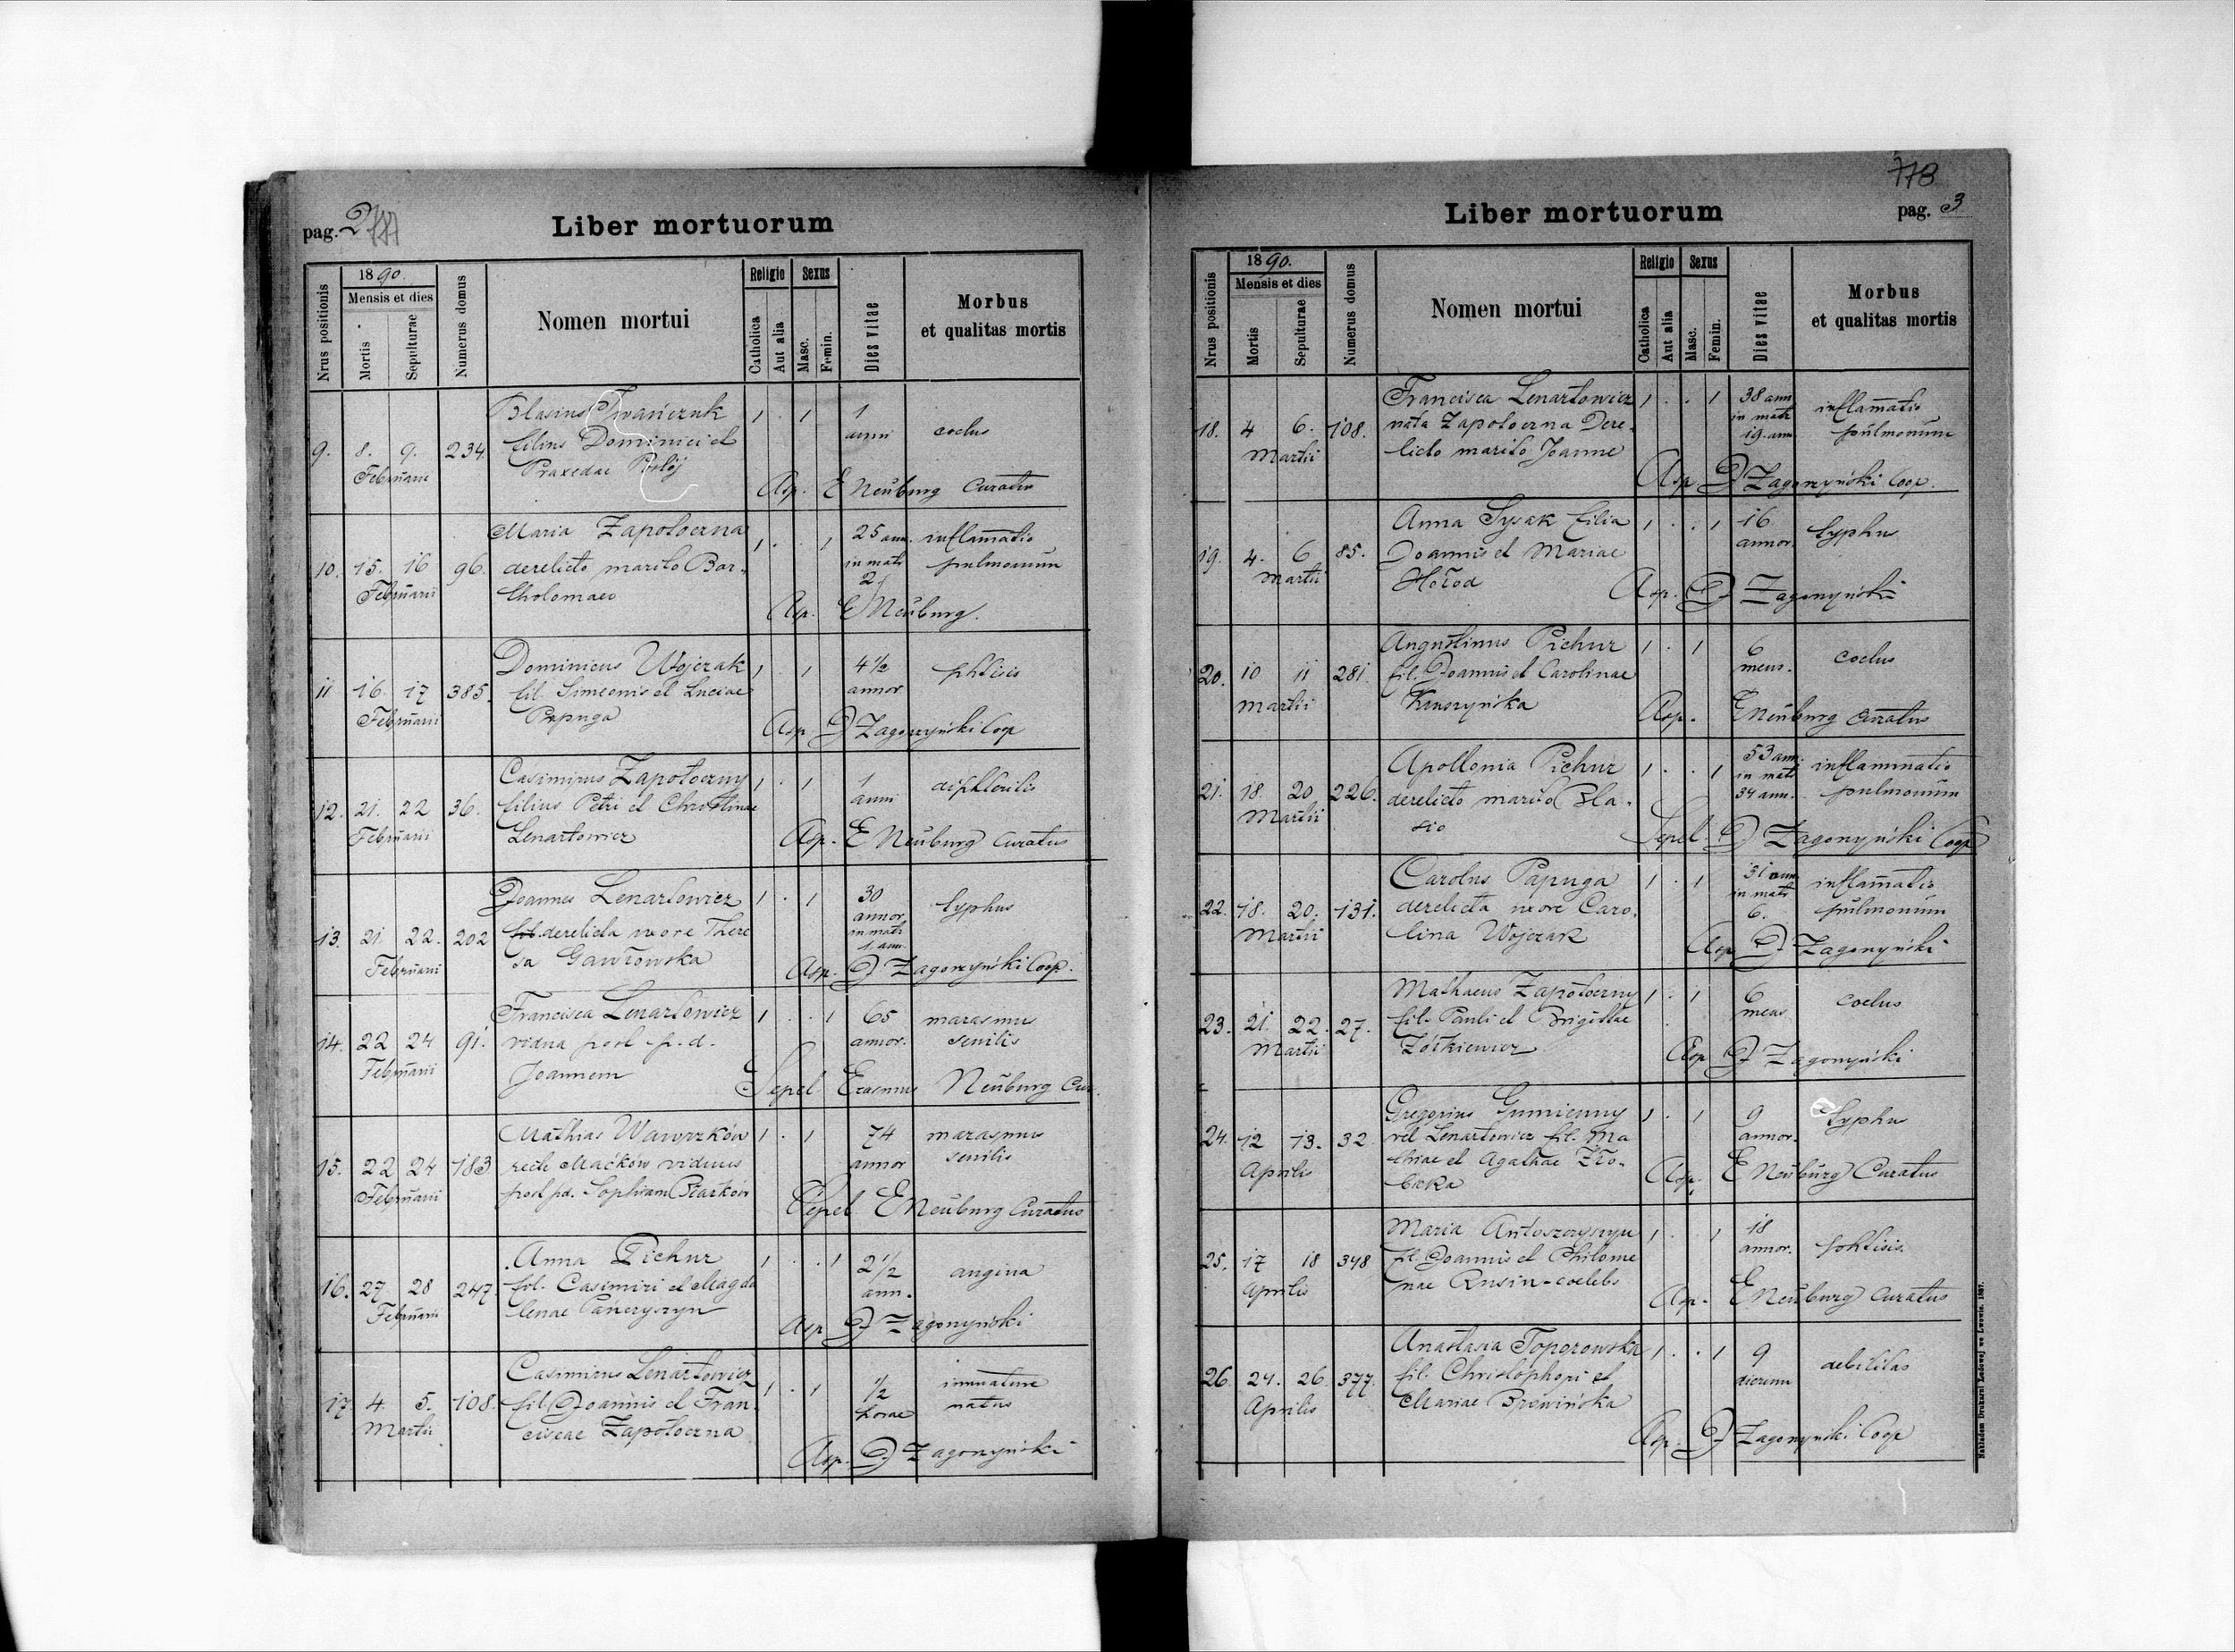 pag. 2
Liber mortuorum
Nrus positionis
1890.
Mensis et dies
Mortis
Sepulturae
Numerus domus
Nomen mortui
Religio
Catholica
Aut alia
Sexus
Masc.
Femin.
Dies vitae
Morbus
et qualitas mortis
9. 8. 9. Februarii 234
Blasius Iwańczuk
filius Dominici et
Praxedae
1 . 1
1
anni
coclus
Asp. E Neuburg Curatus
10. 15. 16 Februarii 96.
Maria Zapotoczna
derelicto marito Bar-
tholomaeo
1 . 1
25 ann.
in matr
2
inflammatio
pulmonum
Asp. E Neuburg.
11 16. 17 Februarii 385.
Dominicus Wojczak
fil. Simeonis et Luciae
Papuga
1 . 1
4 1/2
annor
phtisis
Asp D Zagorzyński Coop
12. 21. 22 Februarii 36.
Casimirus Zapotoczny
filius Petri et Christinae
Lenartowicz
1 . 1
1
anni
diphteritis
Asp. E Neuburg Curatus
13. 21. 22. Februarii 202
Joannes Lenartowicz
fil. derelicta uxore There
sa Gawłowska
1 . 1
30
annor
in matr
1. ann.
typhus
Asp. D Zagorzyński Coop.
14. 22 24 Februarii 91.
Francisca Lenartowicz
vidua post p. d.
Joannem
1 . . 1
65
annor.
marasmus
senilis
Sepel Erasmus Neuburg Cur.
15. 22 24 Februarii 183
Mathias Wawrzków
recte Maćków viduus
post pd. Sophiam
1 . 1
74
annor
marasmus
senilis
Sepel E Neuburg Curatus
16. 27 28 Februarii 247.
Anna Pichur
fil. Casimiri et Magda
lenae Pańczyszyn
1 . . 1
2 1/2
ann.
angina
Asp D Zagorzyński
17. 4. 5. Martii 108.
Casimirus Lenartowicz
fil. Joannis et Fran-
ciscae Zapotoczna
1 . 1
1/2
horae
immature
natus
Asp. D Zagorzyński
778
Liber mortuorum
pag. 3
Nrus positionis
1890.
Mensis et dies
Mortis
Sepulturae
Numerus domus
Nomen mortui
Religio
Catholica
Aut alia
Sexus
Masc.
Femin.
Dies vitae
Morbus
et qualitas mortis
18. 4 6. Martii 108.
Francisca Lenartowicz
nata Zapotoczna Dere-
licto marito Joanne
1 . . 1
38 ann
in matr
19. ann
inflamatio
pulmonum
Asp D Zagorzyński Coop.
19. 4. 6 Martii 85.
Anna Sysak filia
Joannis et Mariae
Hołod
1 . . 1
16
annor.
typhus
Asp. D Zagorzyński
20. 10 11 Martii 281.
Augustinus Pichur
fil. Joannis et Carolinae
Kruszyńska
1 . 1
6
mens.
coclus
Asp. E Neuburg Curatus
21. 18. 20 Martii 226.
Apollonia Pichur
derelicto marito Bla-
sio
1 . . 1
53 ann.
in matr
34 ann.
inflammatio
pulmonum
Sepel. D Zagorzyński Coop
22. 18. 20. Martii 131.
Carolus Papuga
derelicta uxore Caro-
lina Wojczak
1 . 1
31 ann
in matr
6.
inflamatio
pulmonum
Asp D Zagorzyński
23. 21. 22. Martii 27.
Mathaeus Zapotoczny
fil. Pauli et Brigittae
Żółkiewicz
1 . 1
6
mens
coclus
Asp D Zagorzyński
24. 12 13. Aprilis 32.
Gregorius Gumienny
vel Lenartowicz fil. Ma
thiae et Agathae
1 . 1
9
annor.
typhus
Asp. E Neuburg Curatus
25. 17 18 Aprilis 348
Maria Antoszczyszyn
fil. Joannis et Philome
nae Rusin - coelebs
1 . 1
18
annor.
phtisis.
Asp. E Neuburg Curatus
26. 24. 26. Aprilis 377.
Anastasia Toporowska
fil. Christophori et
Mariae
1 . . 1
9
dierum
debilitas
Asp. D Zagorzyński Coop
Nakładem Drukarni Ludowej we Lwowie. 1887.